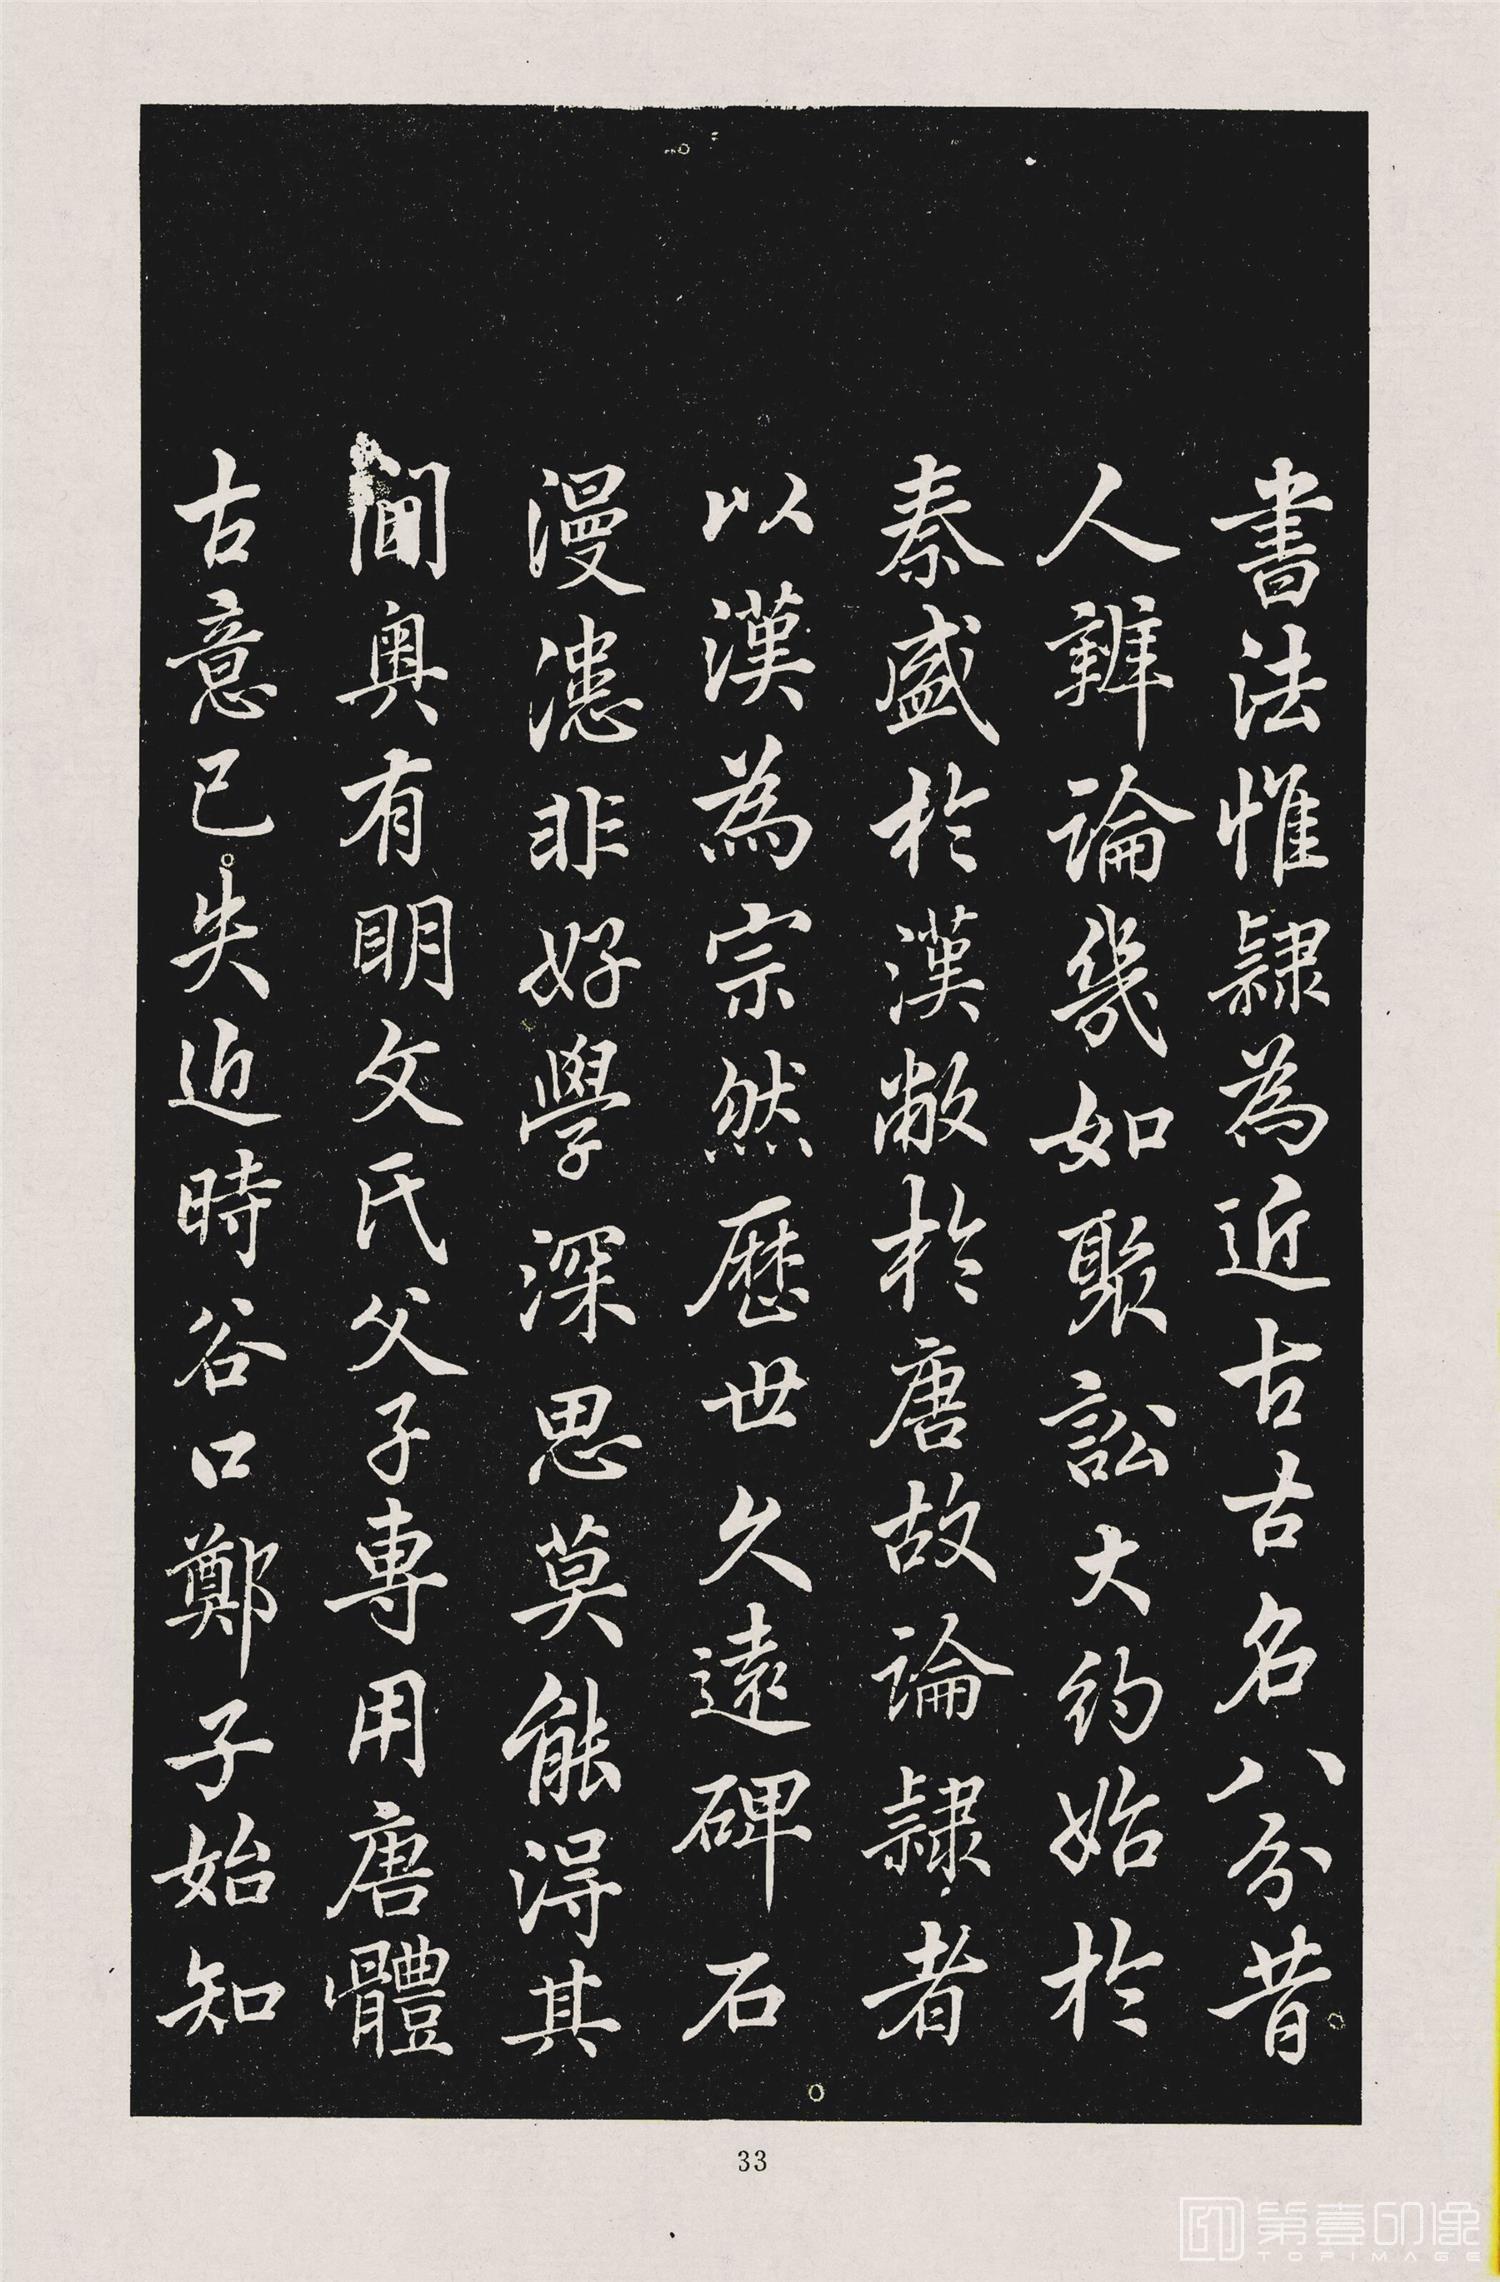 書法惟隸為近古古名八分昔
人辨論幾如聚訟大約始於
秦盛於漢敝於唐故論隸者
以漢為宗然歷世久遠碑石
漫漶非好學深思莫能得其
間奧有明文氏父子專用唐體
古意已失近時谷口鄭子始知
33
第壹印像
TOPIMAGE